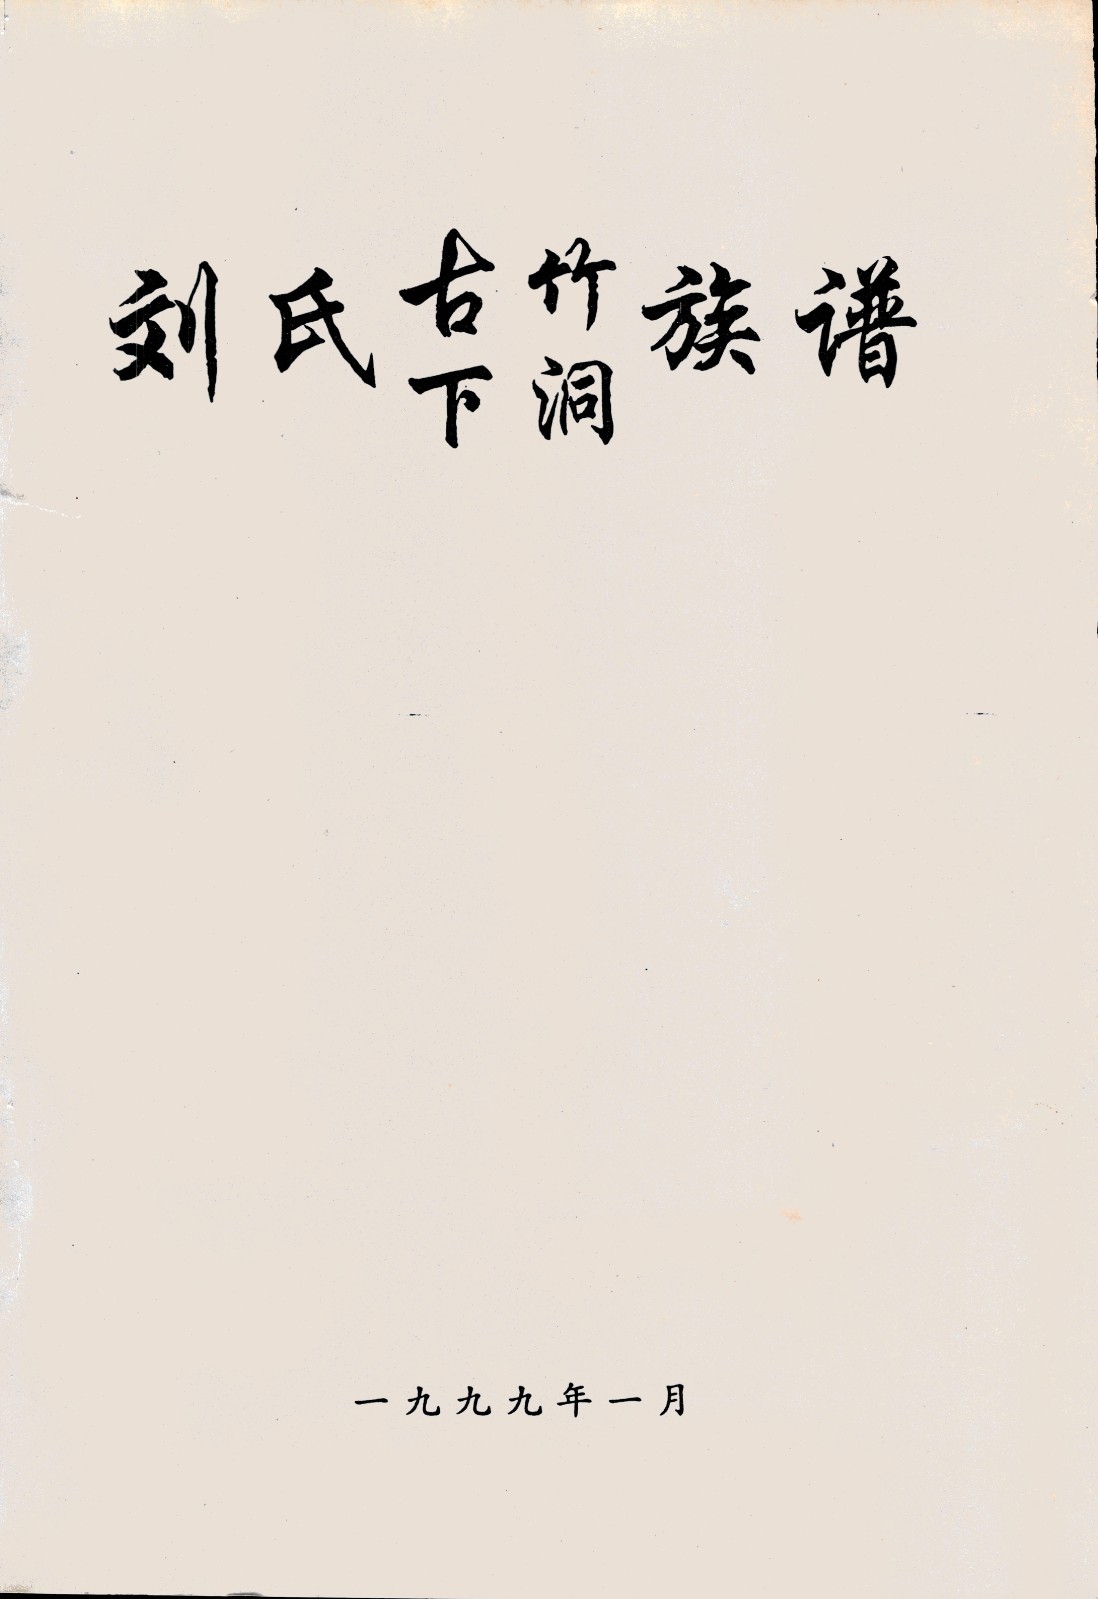 刘氏古竹下洞族谱
一九九九年一月